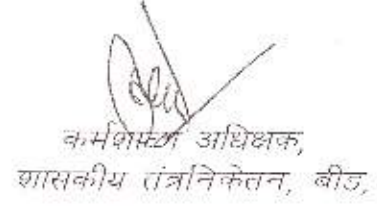 कर्मशाळा अधिक्षक,
शासकीय तंत्रनिकेतन, बीड,